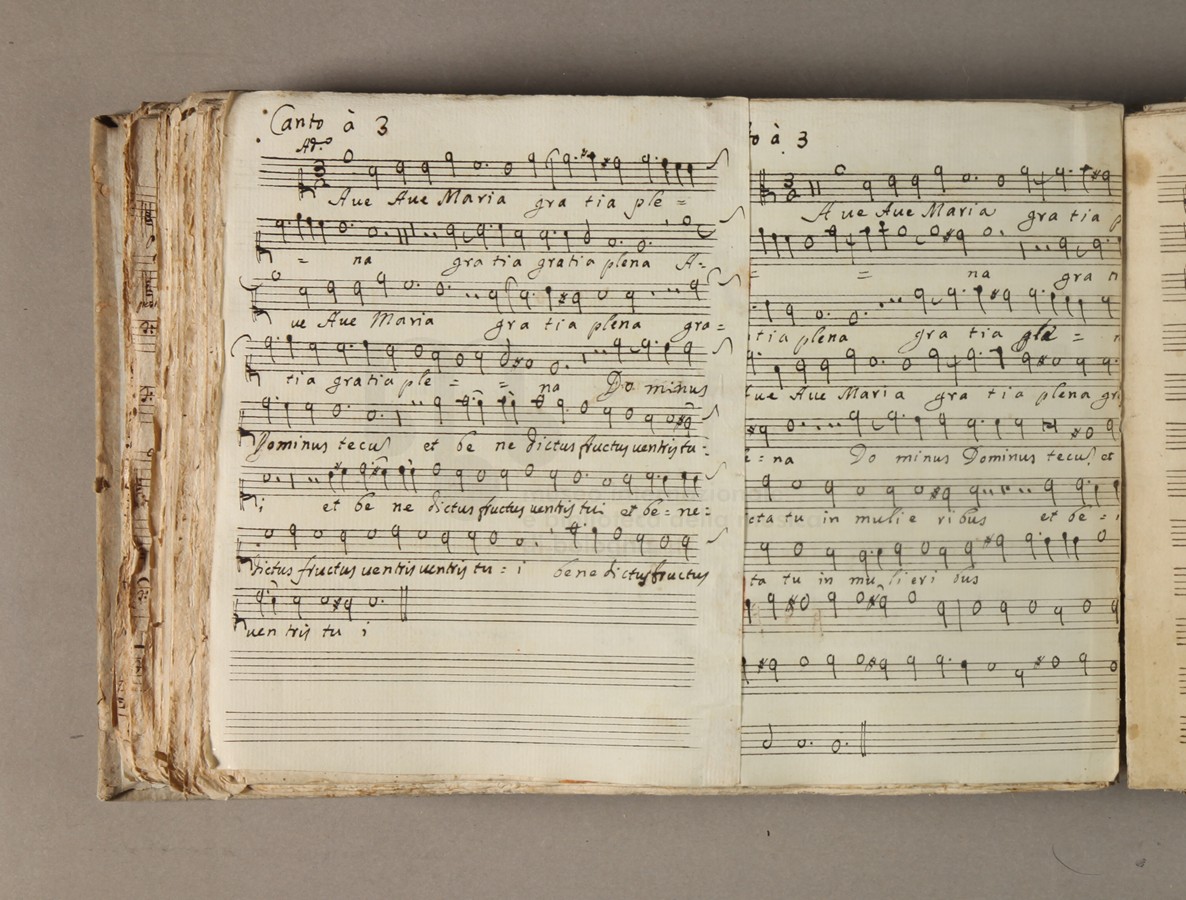 Canto à 3
Ad.o
Aue Aue Maria gra tia ple =
= na gra tia gratia plena A-
ue Aue Maria gra tia plena gra=
tia gratia ple = = na Do minus
Dominus tecu et be ne dictus fructus uentris tu-
i et be ne dictus fructus uentris tui et be= ne=
dictus fructus uentris uentris tu = i bene dictus fructus
uen tris tu i
to à 3
Aue Aue Maria gra tia p
= = na gra
tia plena gra tia ple =
ue Aue Maria gra tia plena gra
e = na Do minus Dominus tecu, et
icta tu in mulie ribus et be =
ta tu in mu lieri bus